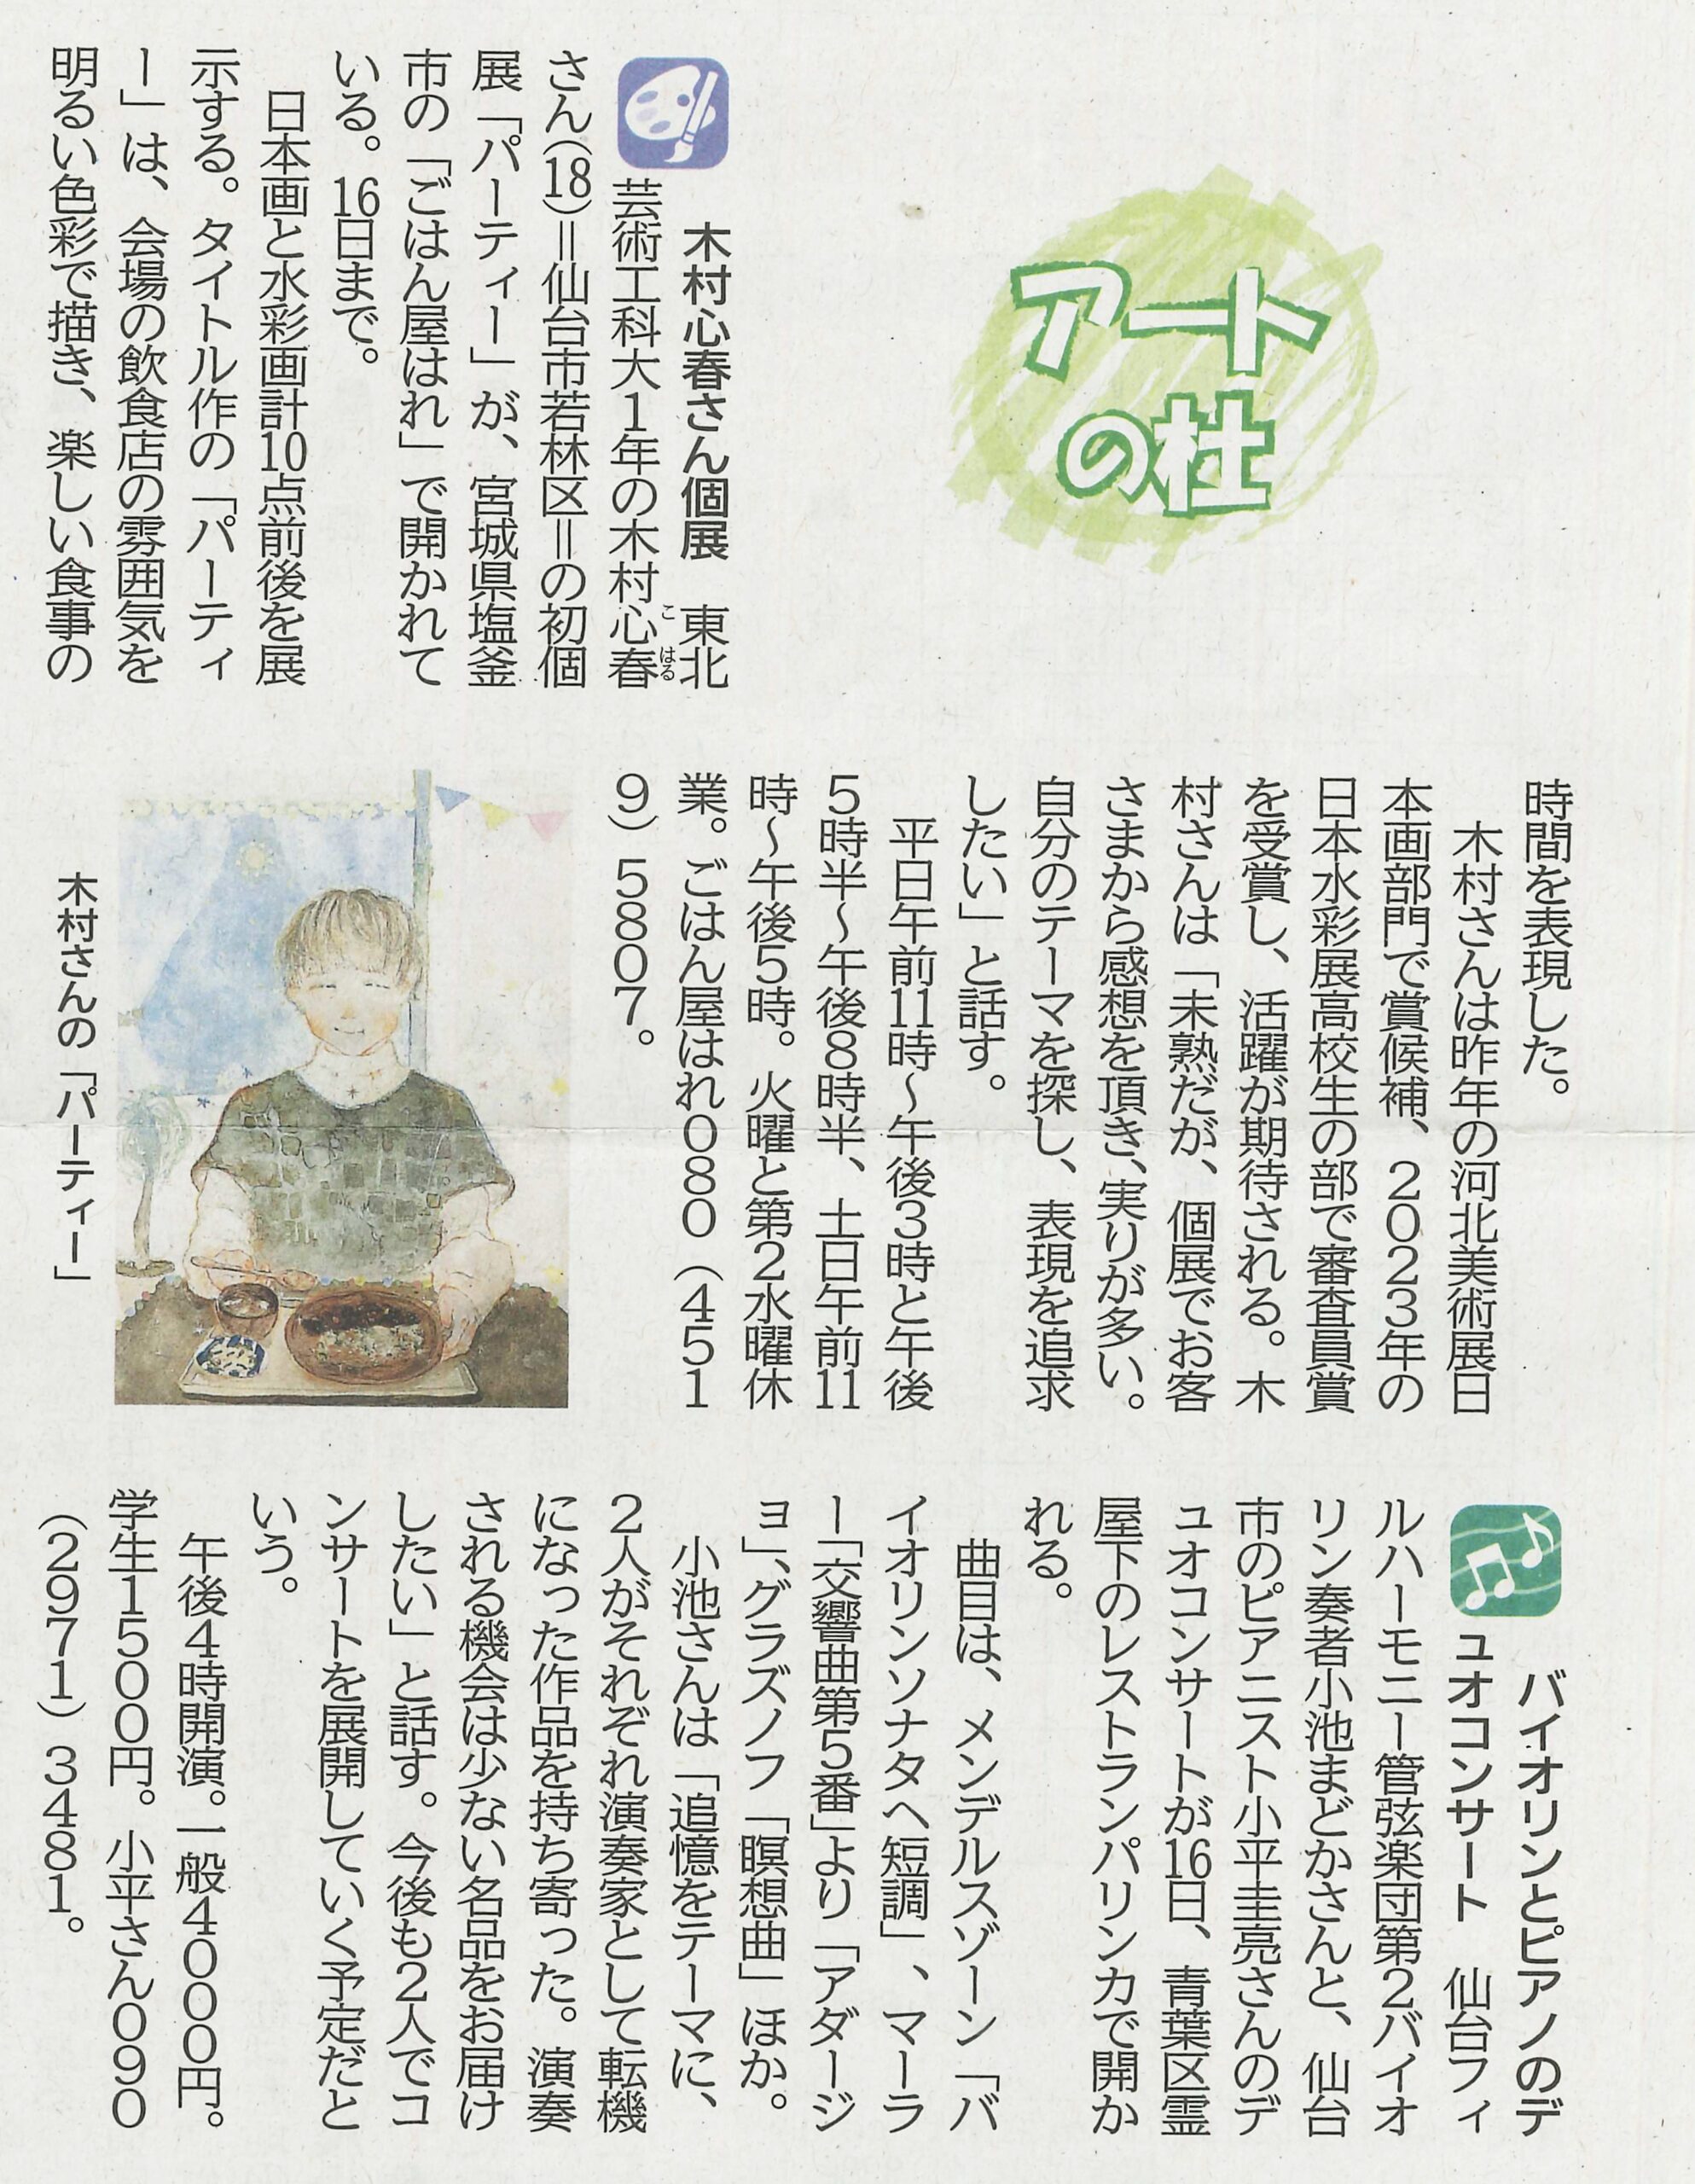 アート
の杜
木村心春さん個展　東北
芸術工科大1年の木村心春
こはる
さん(18)＝仙台市若林区＝の初個
展「パーティー」が、宮城県塩釜
市の「ごはん屋はれ」で開かれて
いる。16日まで。
日本画と水彩画計10点前後を展
示する。タイトル作の「パーティ
ー」は、会場の飲食店の雰囲気を
明るい色彩で描き、楽しい食事の
時間を表現した。
木村さんは昨年の河北美術展日
本画部門で賞候補、2023年の
日本水彩展高校生の部で審査員賞
を受賞し、活躍が期待される。木
村さんは「未熟だが、個展でお客
さまから感想を頂き、実りが多い。
自分のテーマを探し、表現を追求
したい」と話す。
平日午前11時～午後3時と午後
5時半～午後8時半、土日午前11
時～午後5時。火曜と第2水曜休
業。ごはん屋はれ080（451
9）5807。
木村さんの「パーティー」
バイオリンとピアノのデ
ュオコンサート　仙台フィ
ルハーモニー管弦楽団第2バイオ
リン奏者小池まどかさんと、仙台
市のピアニスト小平圭亮さんのデ
ュオコンサートが16日、青葉区霊
屋下のレストランパリンカで開か
れる。
曲目は、メンデルスゾーン「バ
イオリンソナタヘ短調」、マーラ
ー「交響曲第5番」より「アダージ
ョ」、グラズノフ「瞑想曲」ほか。
小池さんは「追憶をテーマに、
2人がそれぞれ演奏家として転機
になった作品を持ち寄った。演奏
される機会は少ない名品をお届け
したい」と話す。今後も2人でコ
ンサートを展開していく予定だと
いう。
午後4時開演。一般4000円。
学生1500円。小平さん090
（2971）3481。